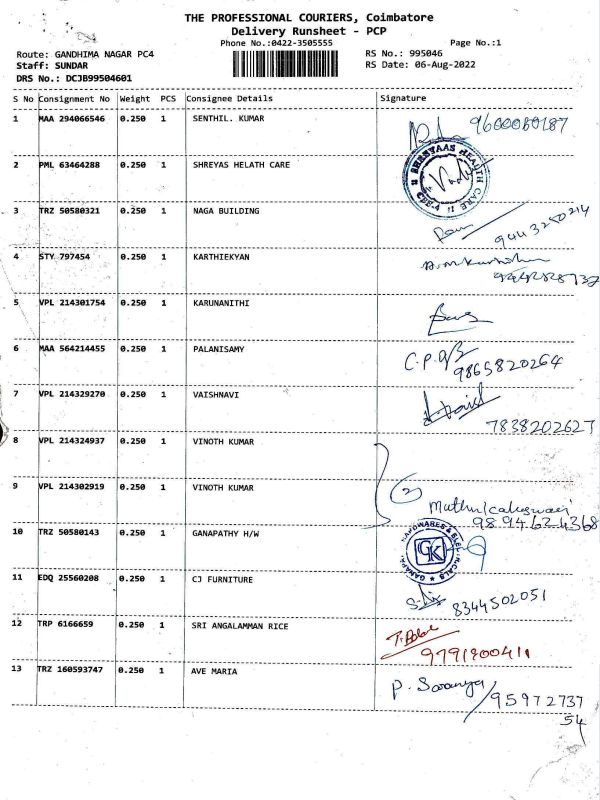 THE PROFESSIONAL COURIERS, Coimbatore
Delivery Runsheet - PCP
Phone No.:0422-3505555
Page No.:1
Route: GANDHIMA NAGAR PC4
Staff: SUNDAR
DRS No.: DCJB99504601
RS No.: 995046
RS Date: 06-Aug-2022
S No Consignment No Weight PCS Consignee Details Signature
1 MAA 294066546 0.250 1 SENTHIL. KUMAR
2 PML 63464288 0.250 1 SHREYAS HELATH CARE
SHREYAAS HEALTH CARE
3 TRZ 50580321 0.250 1 NAGA BUILDING
9443250214
4 STY 797454 0.250 1 KARTHIEKYAN
5 VPL 214301754 0.250 1 KARUNANITHI
6 MAA 564214455 0.250 1 PALANISAMY
9865820264
7 VPL 214329270 0.250 1 VAISHNAVI
7838202627
8 VPL 214324937 0.250 1 VINOTH KUMAR
9 VPL 214302919 0.250 1 VINOTH KUMAR
2
9894624368
10 TRZ 50580143 0.250 1 GANAPATHY H/W
GK
11 EDQ 25560208 0.250 1 CJ FURNITURE
8344502051
12 TRP 6166659 0.250 1 SRI ANGALAMMAN RICE
9791900411
13 TRZ 160593747 0.250 1 AVE MARIA
P. Saranya
95972737
54